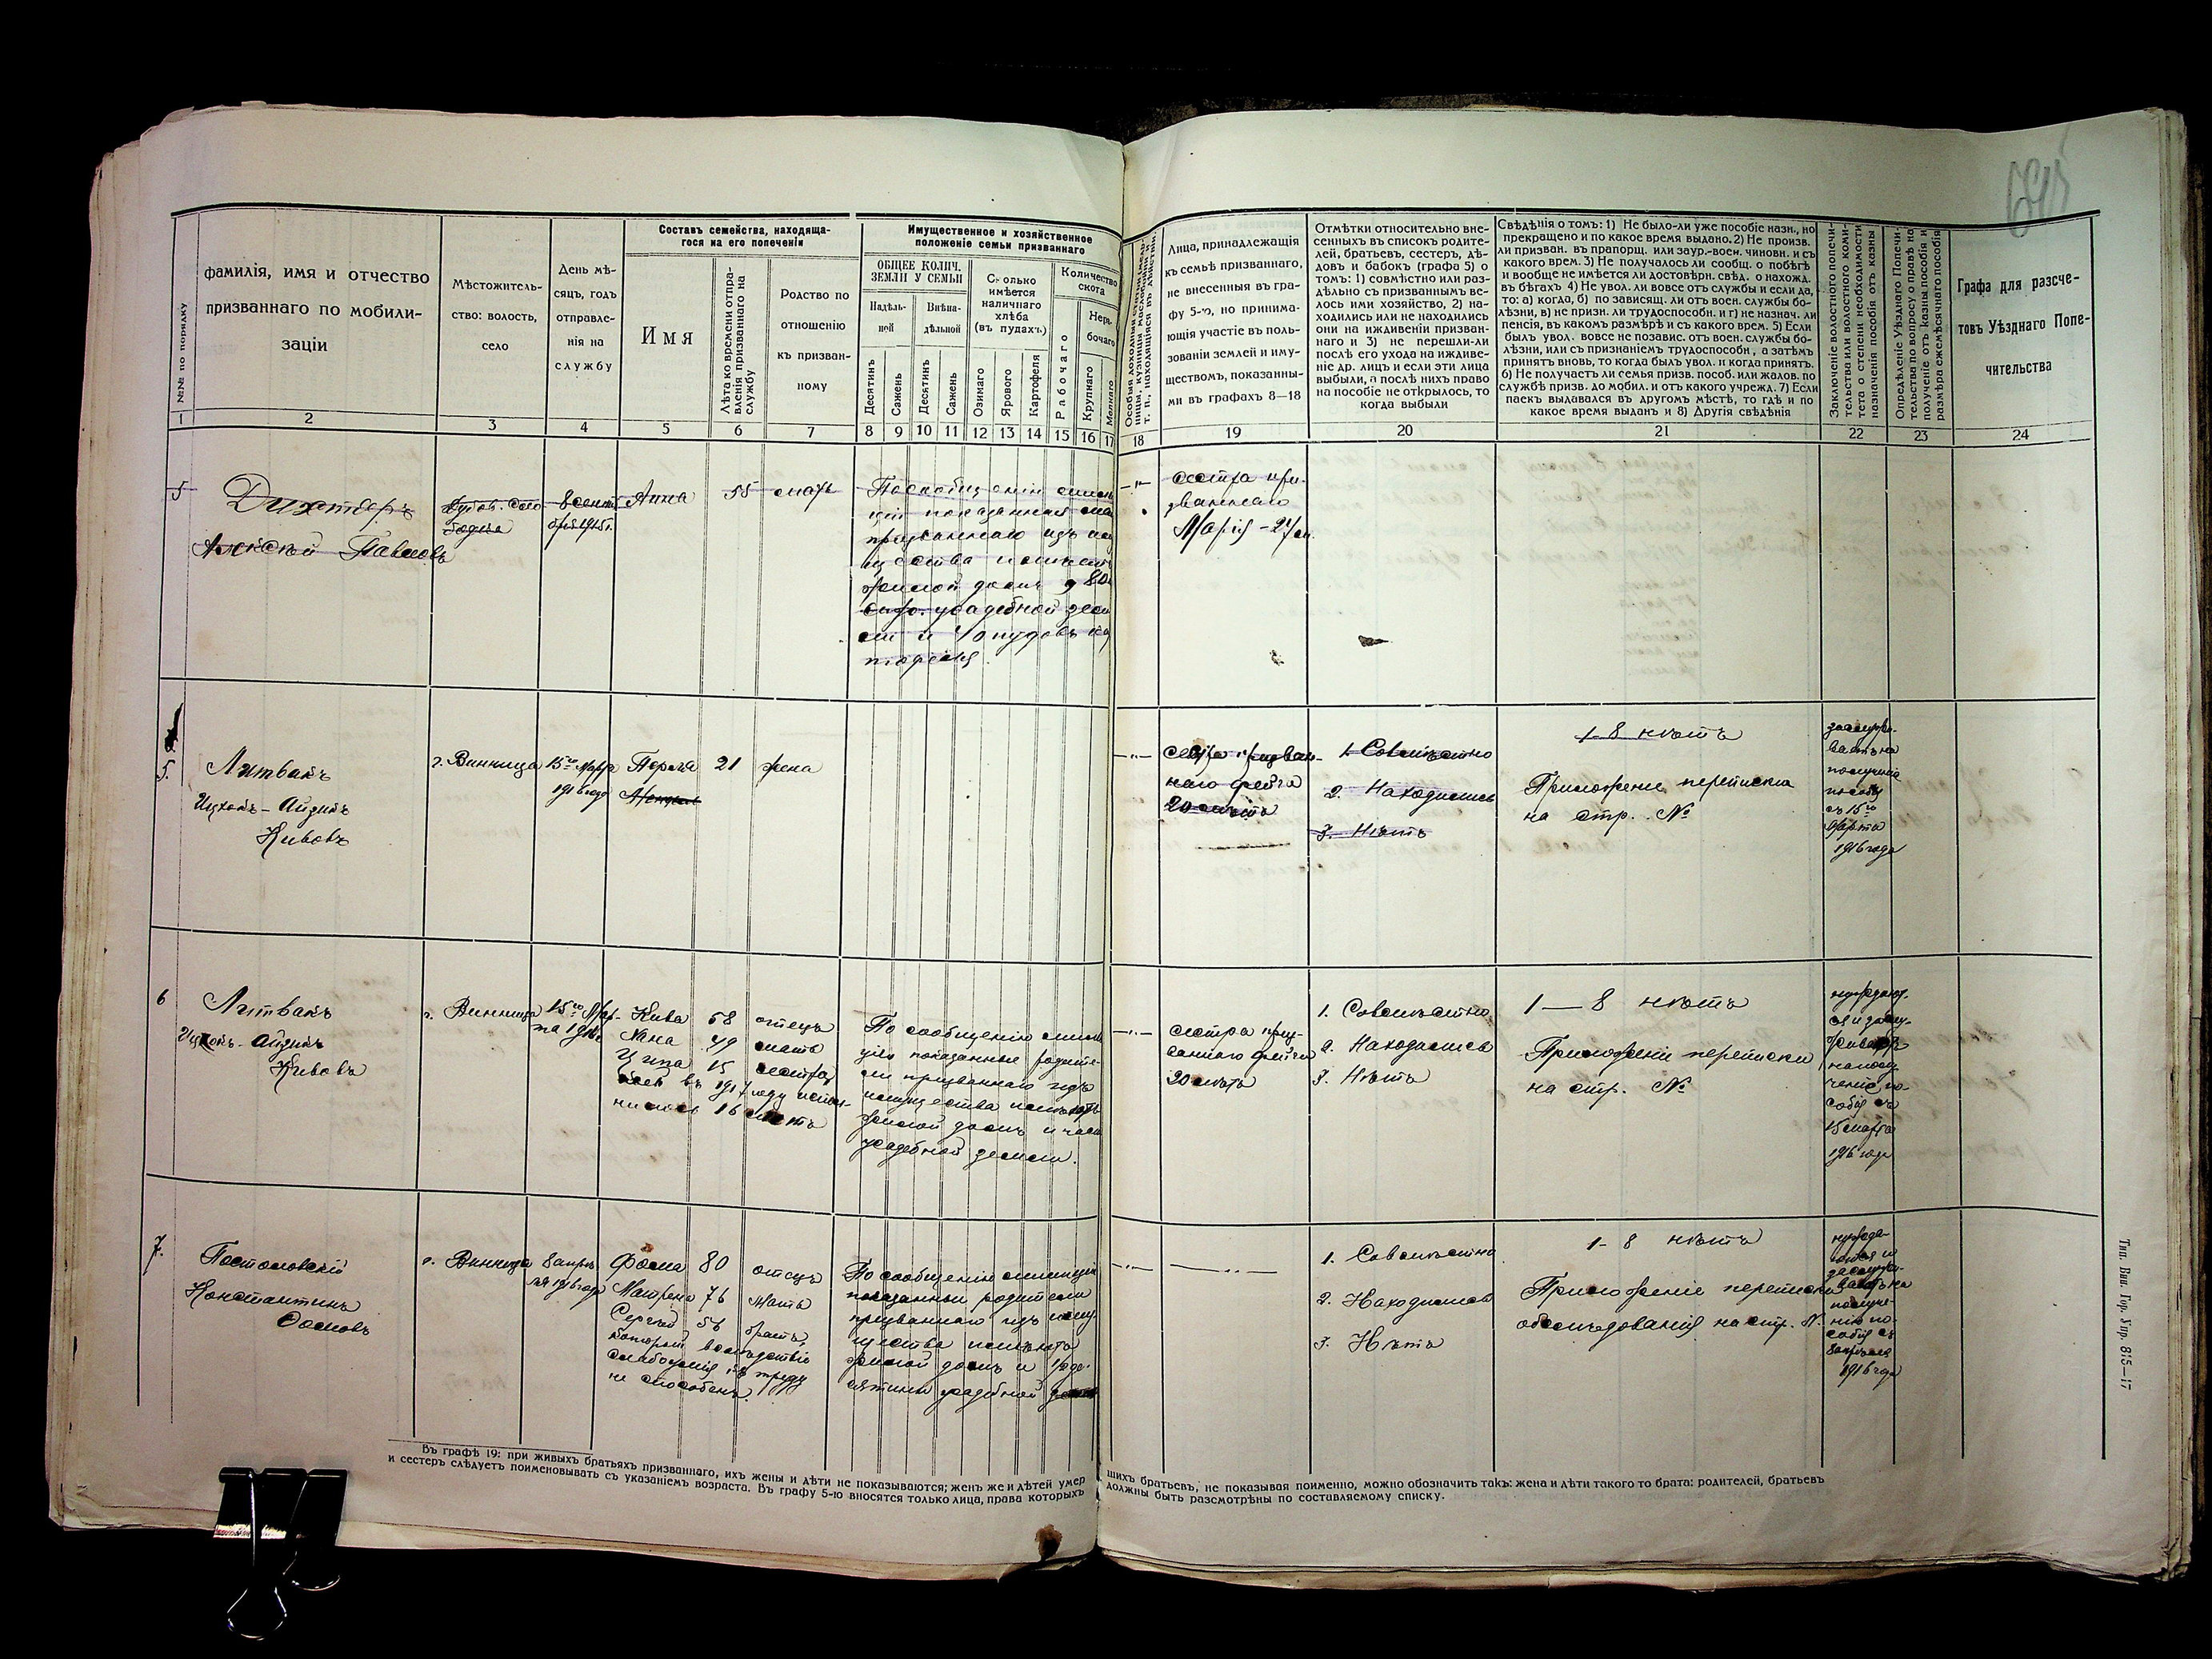 №№ по порядку
фамилія, имя и отчество
призваннаго по мобили-
заціи
Мѣстожитель-
ство: волость,
село
День мѣ-
сяцъ, годъ
отправле-
нія на
службу
Составъ семейства, находяща-
гося на его попеченіи
Имя
Лѣта ко времени отпра-
вленія призваннаго на
службу
Родство по
отношенію
къ призван-
ному
Имущественное и хозяйственное
положеніе семьи призваннаго
ОБЩЕЕ КОЛИЧ.
ЗЕМЛИ У СЕМЬИ
Надѣль-
ной
Внѣна-
дѣльной
Десятинъ
Сажень
Десятинъ
Сажень
Сколько
имѣется
наличнаго
хлѣба
(въ пудахъ)
Озимаго
Ярового
Картофеля
Количество
скота
Рабочаго
Нера-
бочаго
Крупнаго
Мелкаго
Лица, принадлежащія
къ семьѣ призваннаго,
не внесенныя въ гра-
фу 5-ю, но принима-
ющія участіе въ поль-
зованіи землей и иму-
ществомъ, показанны-
ми въ графахъ 8—18
Отмѣтки относительно вне-
сенныхъ въ списокъ родите-
лей, братьевъ, сестеръ, дѣ-
довъ и бабокъ (графа 5) о
томъ: 1) совмѣстно или раз-
дѣльно съ призваннымъ ве-
лось ими хозяйство, 2) на-
ходились или не находились
они на иждивеніи призван-
наго и 3) не перешли-ли
послѣ его ухода на иждиве-
ніе др. лицъ и если эти лица
выбыли, а послѣ нихъ право
на пособіе не открылось, то
когда выбыли
Свѣдѣнія о томъ: 1) Не было-ли уже пособіе назн., но
прекращено и по какое время выдано. 2) Не произв.
ли призван. въ прапорщ. или заур.-воен. чиновн. и съ
какого врем. 3) Не получалось ли сообщ. о побѣгѣ
и вообще не имѣется ли достовѣрн. свѣд. о нахожд.
въ бѣгахъ 4) Не увол. ли вовсе отъ службы и если да,
то: а) когда, б) по зависящ. ли отъ воен. службы бо-
лѣзни, в) не призн. ли трудоспособн. и г) не назнач. ли
пенсія, въ какомъ размѣрѣ и съ какого врем. 5) Если
былъ увол. вовсе не позавис. отъ воен. службы бо-
лѣзни, или съ признаніемъ трудоспособн, а затѣмъ
принятъ вновь, то когда былъ увол. и когда принятъ.
6) Не получаетъ ли семья призв. пособ. или жалов. по
службѣ призв. до мобил. и отъ какого учрежд. 7) Если
паекъ выдавался въ другомъ мѣстѣ, то гдѣ и по
какое время выданъ и 8) Другія свѣдѣнія
Заключеніе волостного попечи-
тельства или волостного коми-
тета о степени необходимости
назначенія пособія отъ казны
Опредѣленіе Уѣзднаго Попечи-
тельства по вопросу о правѣ на
полученіе отъ казны пособія и
размѣра ежемѣсячнаго пособія
Графа для разсче-
товъ Уѣзднаго Попе-
чительства
1 2 3 4 5 6 7 8 9 10 11 12 13 14 15 16 17 18 19 20 21 22 23 24
5
Дихтеръ
Алексѣй Павловъ
8 сентя
бря 1915 г.
Анна 55 мать
призваннаго изъ
жилой домъ
усадебной
сестра при-
званнаго
Марія - 27 л.
5.
Литвакъ
Ицхокъ-Айзикъ
Кивовъ
г. Винница
15го Марта
1916 года
Перля 21 жена
сестра призван-
наго Фейга
20 лѣтъ
1. Совмѣстно
2. Находились
3. Нѣтъ
1-8 нѣтъ
Приложеніе переписки
на стр. №
заслужи-
ваетъ на
полученіе
пособія
съ 15го
Марта
1916 года
6
Литвакъ
Ицхокъ-Айзикъ
Кивовъ
г. Винница
15го Мар-
та 1916
Кива 58 отецъ
Хана 49 мать
Ципа 15 сестра
въ 1917 году испол-
нилось 16 лѣтъ
По сообщенію
показанные родите-
ли призваннаго изъ
имущества имѣютъ
жилой домъ и
усадебной земли.
сестра приз-
ваннаго Фейга
20 лѣтъ
1. Совмѣстно
2. Находились
3. Нѣтъ
1—8 нѣтъ
Приложеніе переписки
на стр. №
нуждают-
ся и заслу-
живаютъ
на полу-
ченіе по-
собія съ
15 марта
1916 года
7.
Постоловскій
Константинъ
Фоминъ
г. Винница
8 апрѣ-
ля 1916 года
Фома 80 отецъ
Матрена 76 мать
Сергѣй 56 братъ,
который вслѣдствіе
слабоумія къ труду
не способенъ.
По сообщенію милиціи
показанные родители
призваннаго изъ иму-
щества имѣютъ
жилой домъ и 1/8 де-
сятины усадебной земли
1. Совмѣстно
2. Находились
3. Нѣтъ
1-8 нѣтъ
Приложеніе переписки
обслѣдованія на стр. №
нужда-
ются и
заслужи-
ваютъ на
получе-
ніе по-
собія съ
8 апрѣля
1916 года
Въ графѣ 19: при живыхъ братьяхъ призваннаго, ихъ жены и дѣти не показываются; женъ же и дѣтей умер шихъ братьевъ, не показывая поименно, можно обозначить такъ: жена и дѣти такого то брата: родителей, братьевъ
и сестеръ слѣдуетъ поименовывать съ указаніемъ возраста. Въ графу 5-ю вносятся только лица, права которыхъ должны быть разсмотрѣны по составляемому списку.
Тип. Вин. Гор. Упр. 815—17